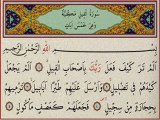 سورة الفيل مكية
وهي خمس آيات
بسم الله الرحمن الرحيم
ألم تر كيف فعل ربك بأصحاب الفيل ألم يجعل
كيدهم في تضليل وأرسل عليهم طيرا أبابيل ترميهم
بحجارة من سجيل فجعلهم كعصف مأكول